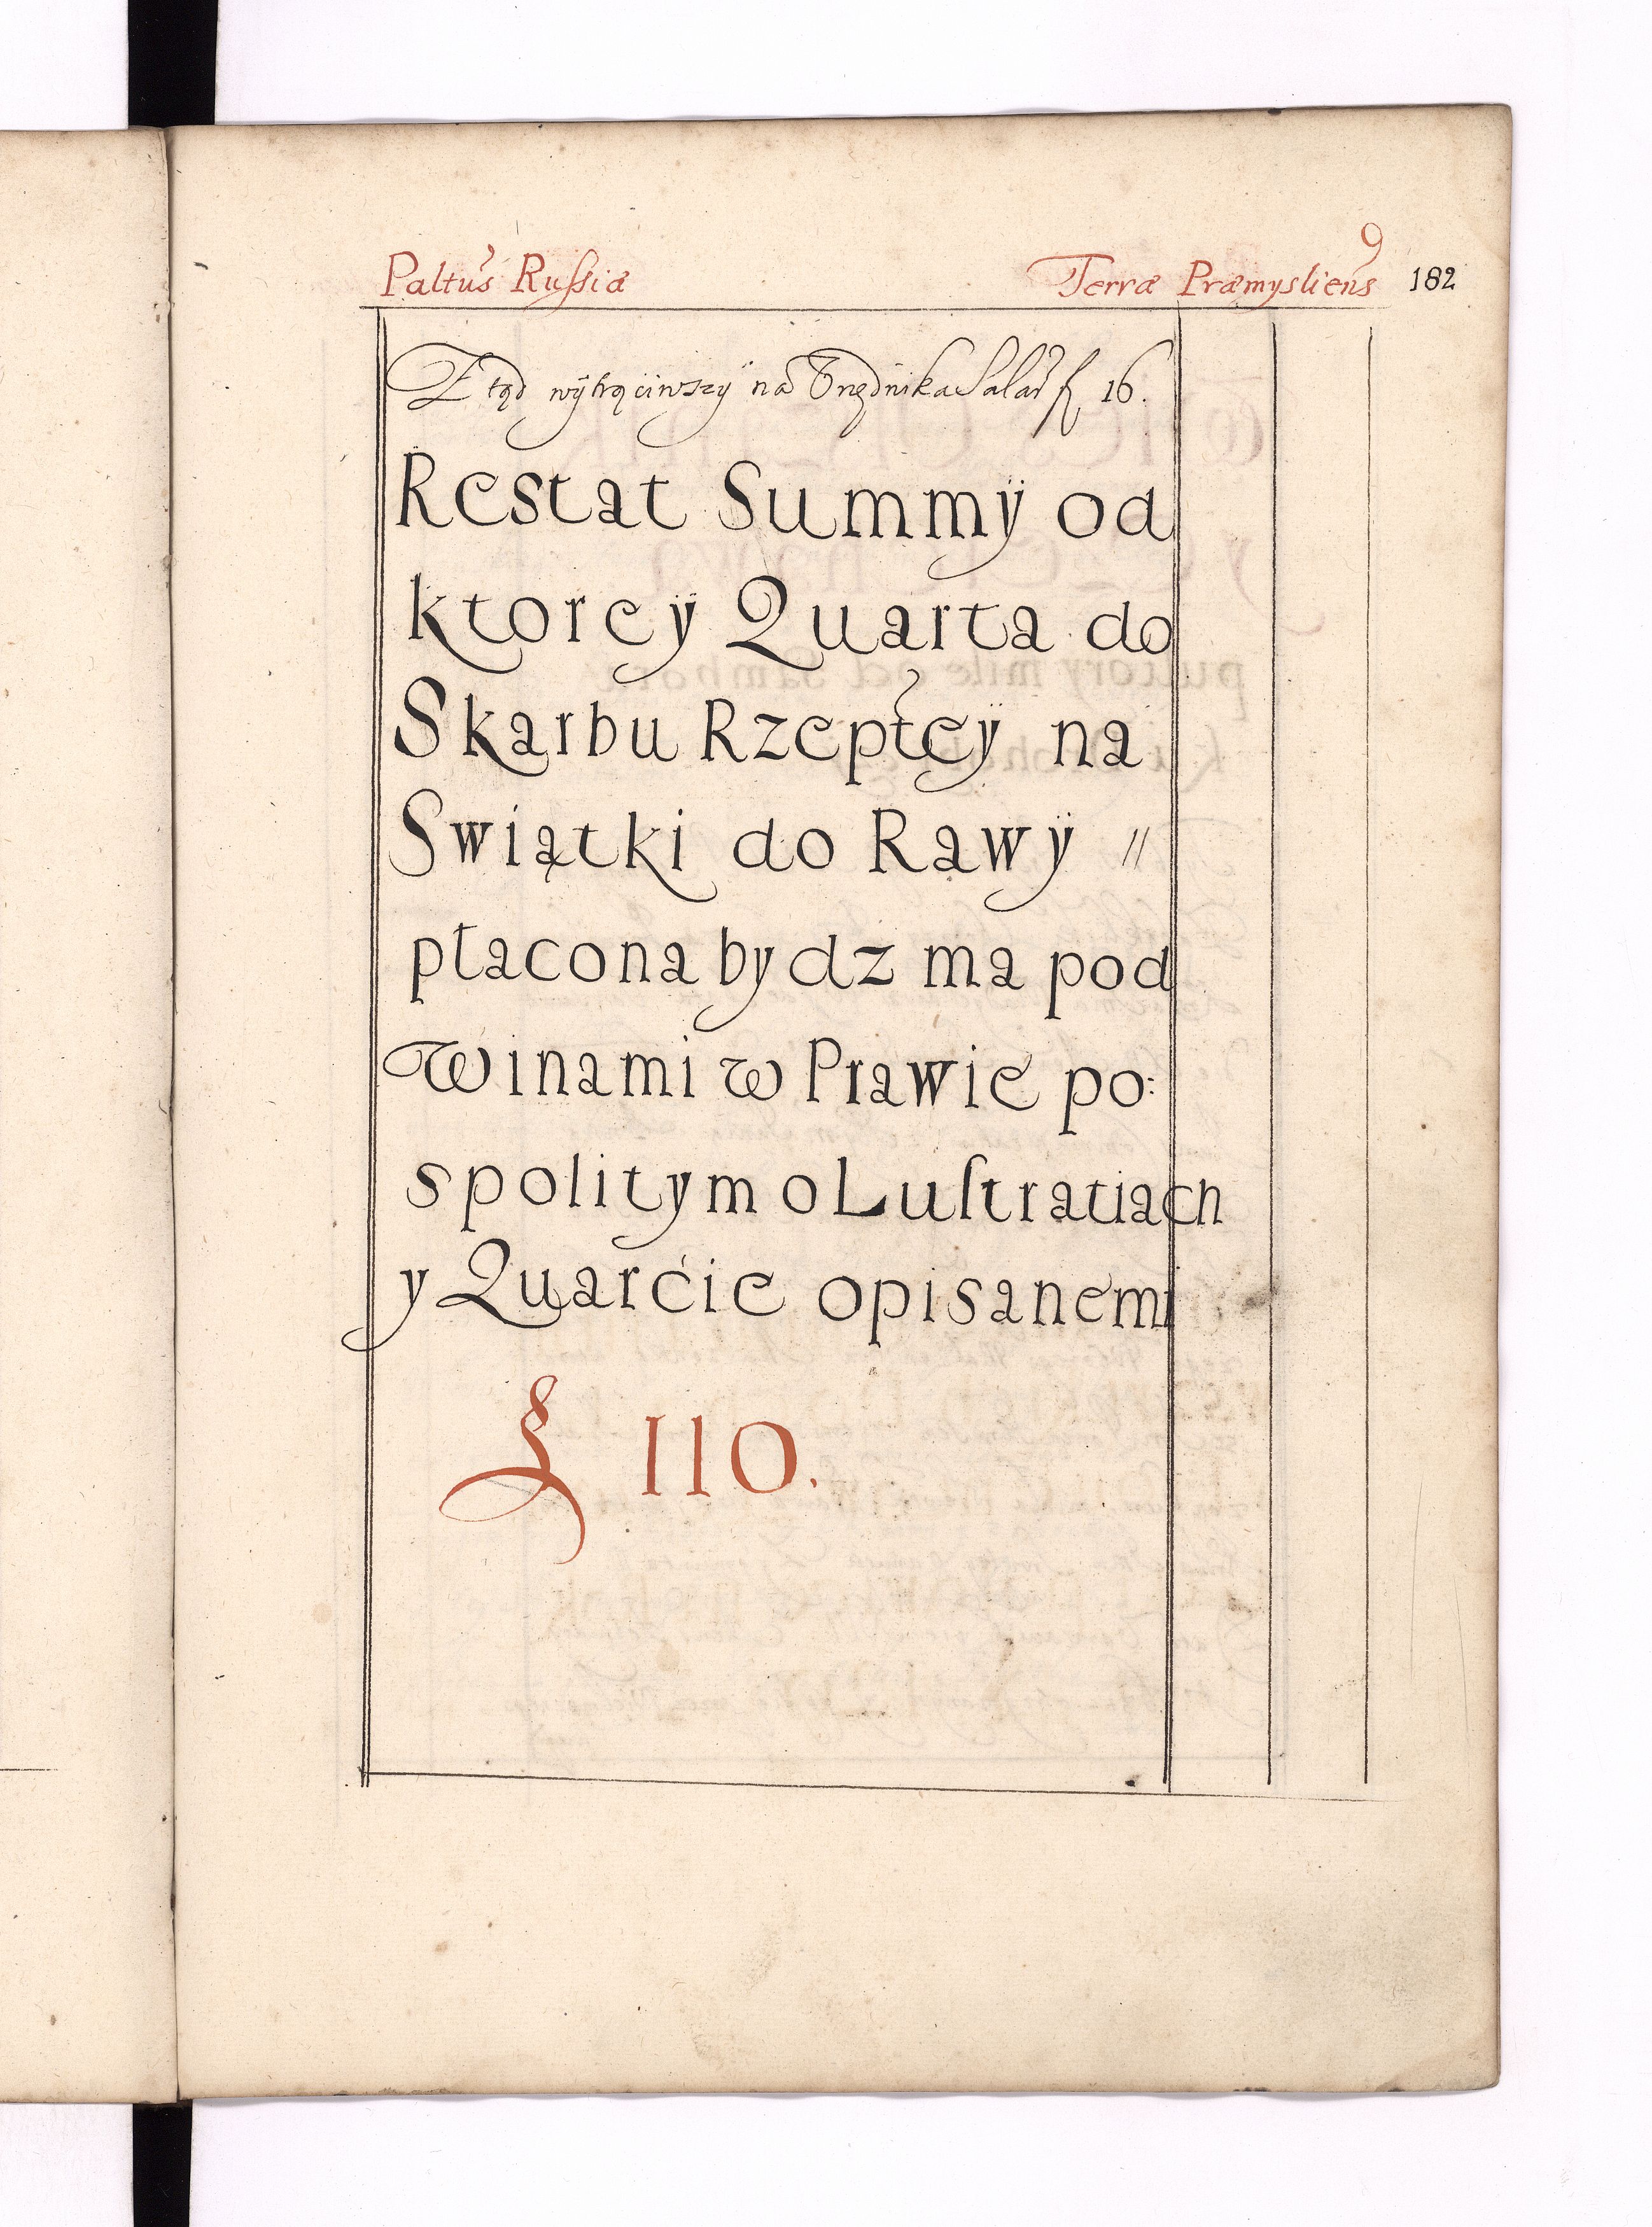 Paltus Russiæ Terræ Præmysliens 182
Z tąd wÿtrąciwszÿ na Vrzędnika Salar f 16.
Restat Summÿ od
ktoreÿ Quarta do
Skarbu Rzepteÿ na
Swiątki do Rawÿ //
płacona bydz ma pod
Winami w Prawie po:
spolitym o Luſtratiach
y Quarćie opisanemi
f 110.